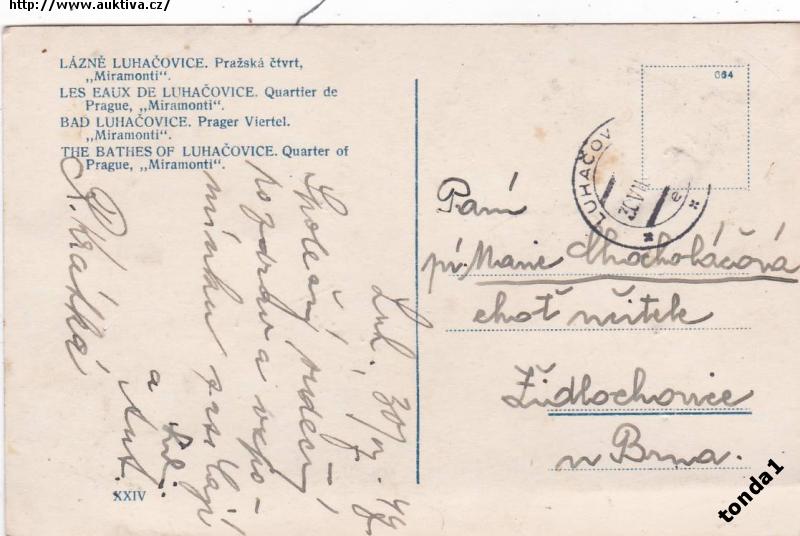 http://www.auktiva.cz/
LÁZNĚ LUHAČOVICE. Pražská čtvrt,
„Miramonti“.
LES EAUX DE LUHAČOVICE. Quartier de
Prague, „Miramonti“.
BAD LUHAČOVICE. Prager Viertel.
„Miramonti“.
THE BATHES OF LUHAČOVICE. Quarter of
Prague, „Miramonti“.
064
LUHAČOV
Luh. 30/
Společný srdečný
pozdrav a vzpo-
mínku zasílají
a
Ant.
R. Krátká
Paní
Marie Chocholáčová
choť učitele
Židlochovice
u Brna.
XXIV
tonda1